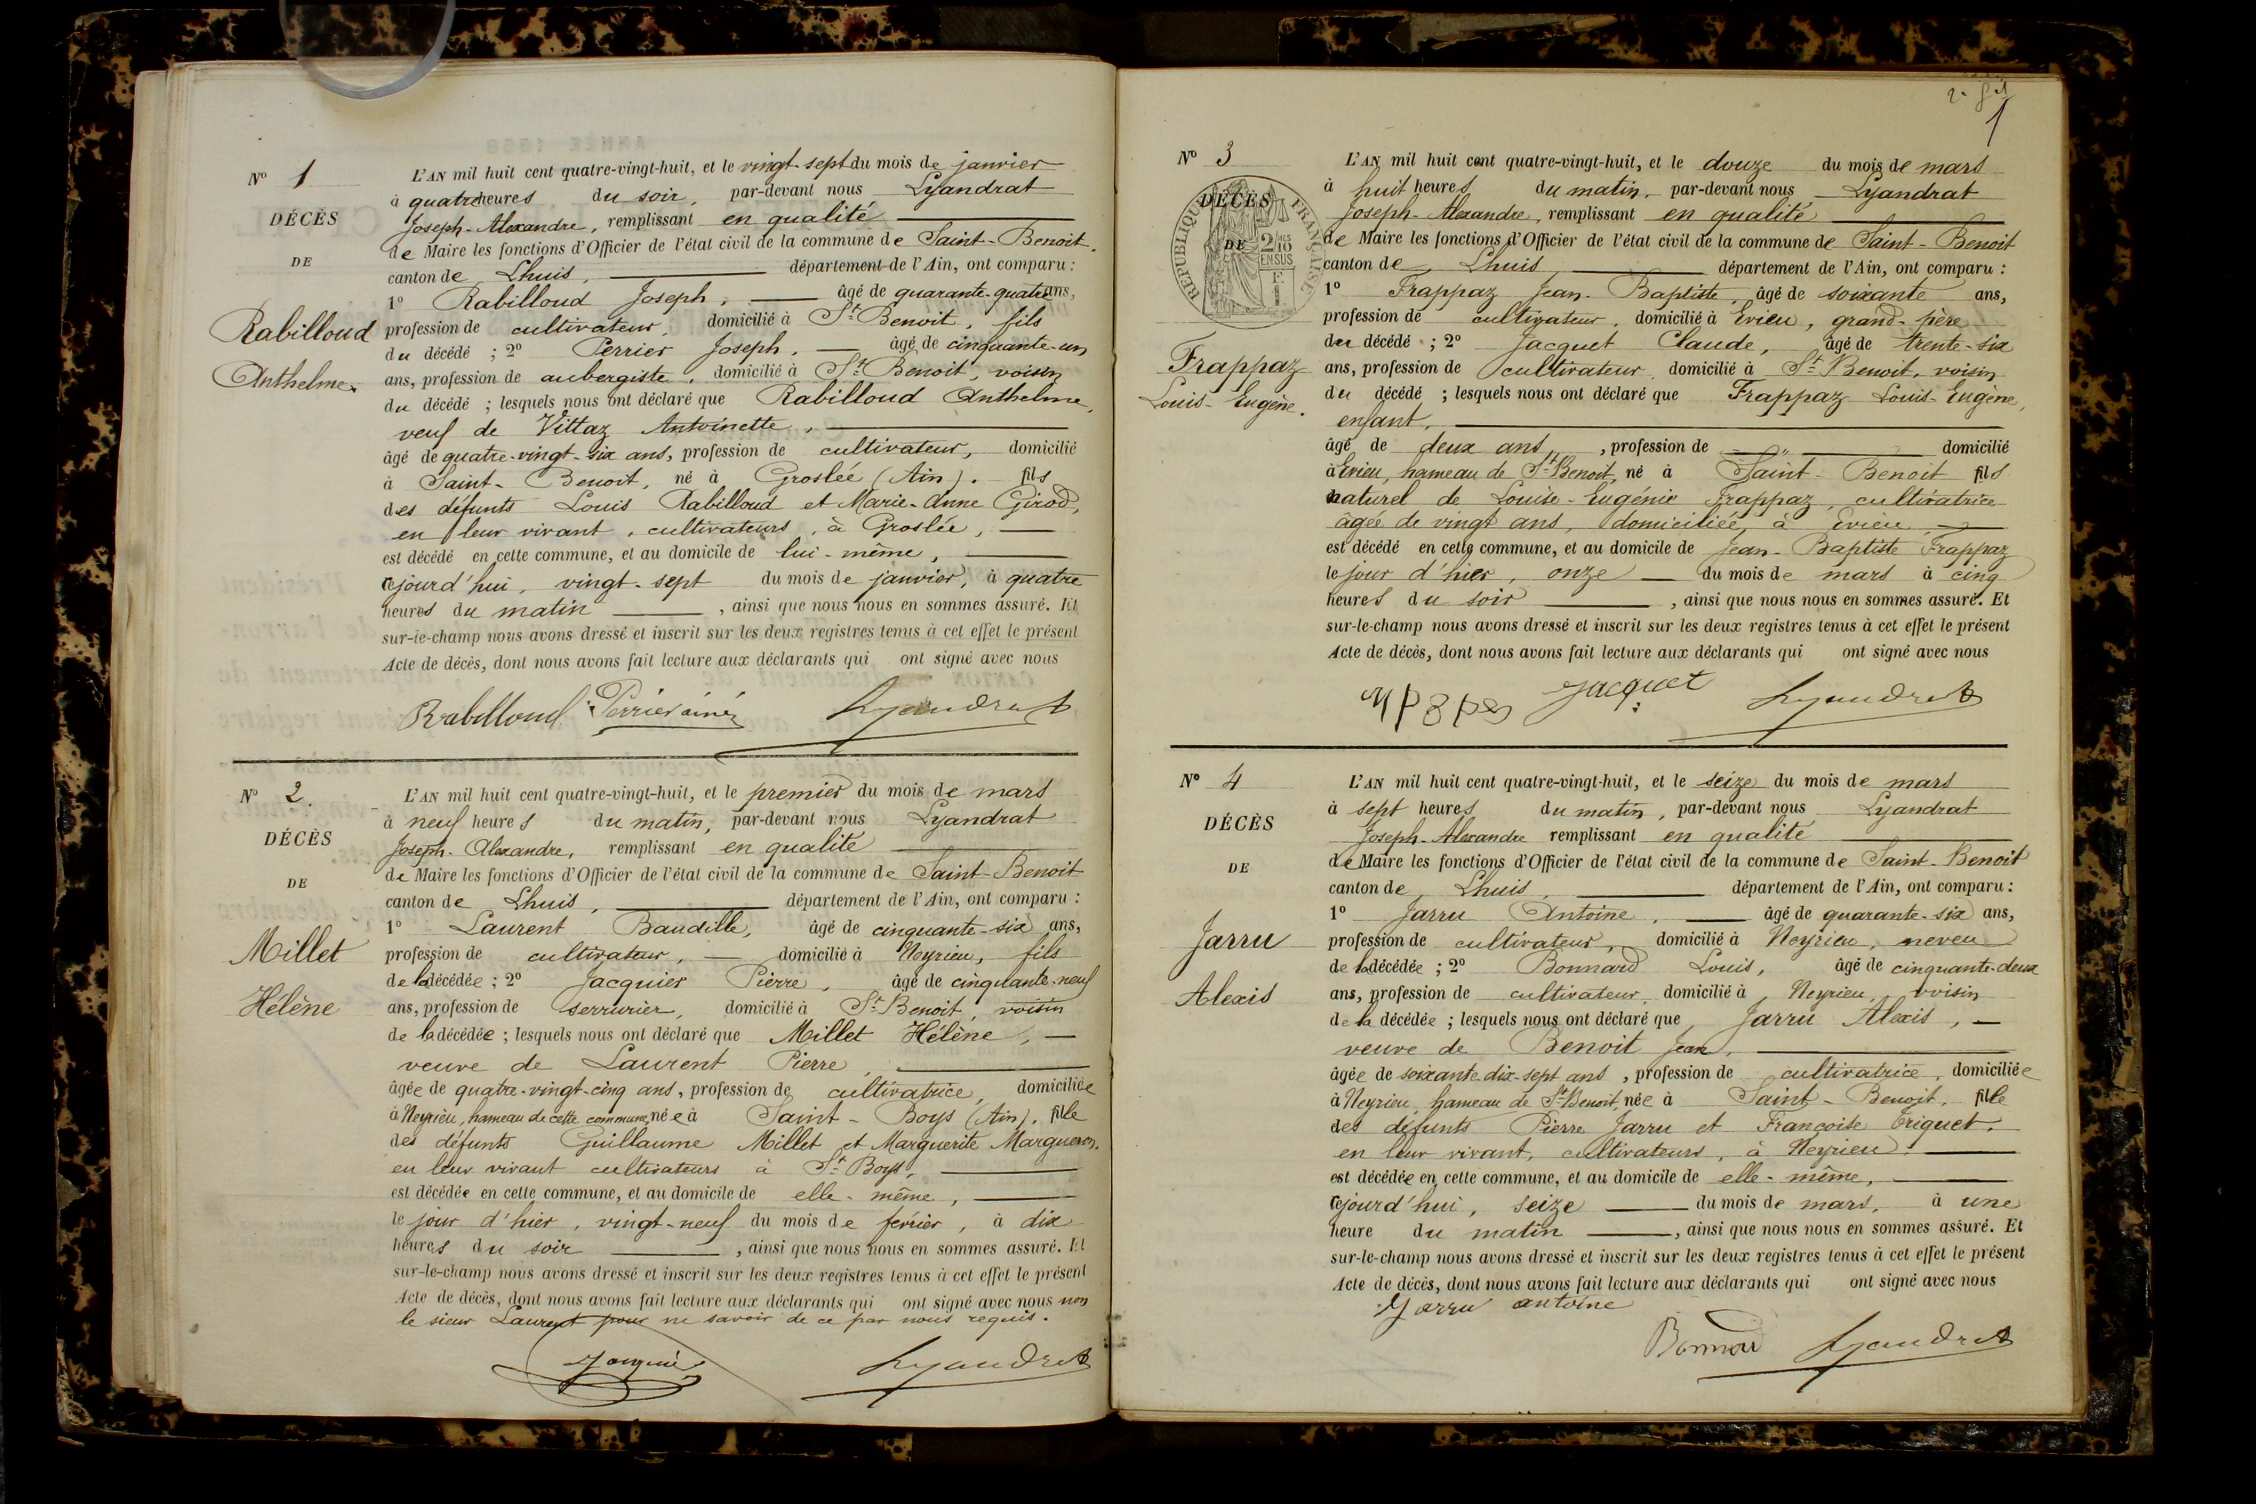 N° 1
DÉCÈS
DE
Rabilloud
Anthelme.
L'AN mil huit cent quatre-vingt-huit, et le vingt-sept du mois de janvier
à quatre heures du soir, par-devant nous Lyandrat
Joseph-Alexandre, remplissant en qualité
de Maire les fonctions d'Officier de l'état civil de la commune de Saint-Benoit.
canton de Lhuis, département de l'Ain, ont comparu :
1° Rabilloud Joseph, âgé de quarante-quatre ans,
profession de cultivateur, domicilié à St Benoit, fils
du décédé ; 2° Perrier Joseph, âgé de cinquante-un
ans, profession de aubergiste, domicilié à St Benoit, voisin
du décédé ; lesquels nous ont déclaré que Rabilloud Anthelme,
veuf de Vittaz Antoinette,
âgé de quatre-vingt-six ans, profession de cultivateur, domicilié
à Saint-Benoit, né à Groslée (Ain). fils
des défunts Louis Rabilloud et Marie-Anne Girod,
en leur vivant, cultivateurs, à Groslée,
est décédé en cette commune, et au domicile de lui-même,
cejourd'hui, vingt-sept du mois de janvier, à quatre
heures du matin, ainsi que nous nous en sommes assuré. Et
sur-le-champ nous avons dressé et inscrit sur les deux registres tenus à cet effet le présent
Acte de décès, dont nous avons fait lecture aux déclarants qui ont signé avec nous
Rabilloud Perrier ainé Lyandrat
N° 2.
DÉCÈS
DE
Millet
Hélène
L'AN mil huit cent quatre-vingt-huit, et le premier du mois de mars
à neuf heures du matin, par-devant nous Lyandrat
Joseph-Alexandre, remplissant en qualité
de Maire les fonctions d'Officier de l'état civil de la commune de Saint-Benoit
canton de Lhuis, département de l'Ain, ont comparu :
1° Laurent Baudille, âgé de cinquante-six ans,
profession de cultivateur, domicilié à Neyrieu, fils
de la décédée ; 2° Jacquier Pierre, âgé de cinquante-neuf
ans, profession de serrurier, domicilié à St Benoit, voisin
de la décédée ; lesquels nous ont déclaré que Millet Hélène,
veuve de Laurent Pierre
âgée de quatre-vingt-cinq ans, profession de cultivatrice, domiciliée
à Neyrieu, hameau de cette commune, née à Saint-Boys (Ain). fille
des défunts Guillaume Millet et Marguerite Margueron.
en leur vivant cultivateurs à St Boys,
est décédée en cette commune, et au domicile de elle-même,
le jour d'hier, vingt-neuf du mois de février, à dix
heures du soir, ainsi que nous nous en sommes assuré. Et
sur-le-champ nous avons dressé et inscrit sur les deux registres tenus à cet effet le présent
Acte de décès, dont nous avons fait lecture aux déclarants qui ont signé avec nous non
le sieur Laurent pour ne savoir de ce par nous requis.
Lyandrat
1
N° 3
DÉCÈS
DE
RÉPUBLIQUE FRANÇAISE
2/10 EN SUS
Frappaz
Louis-Eugène.
L'AN mil huit cent quatre-vingt-huit, et le douze du mois de mars
à huit heures du matin, par-devant nous Lyandrat
Joseph-Alexandre, remplissant en qualité
de Maire les fonctions d'Officier de l'état civil de la commune de Saint-Benoit
canton de Lhuis, département de l'Ain, ont comparu :
1° Frappaz Jean-Baptiste, âgé de soixante ans,
profession de cultivateur, domicilié à Evieu, grand-père
du décédé ; 2° Jacquet Claude, âgé de trente-six
ans, profession de cultivateur, domicilié à St Benoit, voisin
du décédé ; lesquels nous ont déclaré que Frappaz Louis-Eugène,
enfant,
âgé de deux ans, profession de „ domicilié
à Evieu, hameau de St Benoit, né à Saint-Benoit fils
naturel de Louise-Eugénie Frappaz, cultivatrice
âgée de vingt ans, domiciliée à Evieu
est décédé en cette commune, et au domicile de Jean-Baptiste Frappaz
le jour d'hier, onze du mois de mars à cinq
heures du soir, ainsi que nous nous en sommes assuré. Et
sur-le-champ nous avons dressé et inscrit sur les deux registres tenus à cet effet le présent
Acte de décès, dont nous avons fait lecture aux déclarants qui ont signé avec nous
Jacquet Lyandrat
N° 4
DÉCÈS
DE
Jarru
Alexis
L'AN mil huit cent quatre-vingt-huit, et le seize du mois de mars
à sept heures du matin, par-devant nous Lyandrat
Joseph-Alexandre remplissant en qualité
de Maire les fonctions d'Officier de l'état civil de la commune de Saint-Benoit
canton de Lhuis, département de l'Ain, ont comparu :
1° Jarru Antoine, âgé de quarante-six ans,
profession de cultivateur, domicilié à Neyrieu, neveu
de la décédée ; 2° Bonnard Louis, âgé de cinquante-deux
ans, profession de cultivateur, domicilié à Neyrieu, voisin
de la décédée ; lesquels nous ont déclaré que Jarru Alexis,
veuve de Benoit Jean,
âgée de soixante-dix-sept ans, profession de cultivatrice, domiciliée
à Neyrieu, hameau de St Benoit, née à Saint-Benoit, fille
des défunts Pierre Jarru et Françoise Triquet.
en leur vivant, cultivateurs, à Neyrieu.
est décédée en cette commune, et au domicile de elle-même,
cejourd'hui, seize du mois de mars, à une
heure du matin, ainsi que nous nous en sommes assuré. Et
sur-le-champ nous avons dressé et inscrit sur les deux registres tenus à cet effet le présent
Acte de décès, dont nous avons fait lecture aux déclarants qui ont signé avec nous
Jarru antoine
Bonnard Lyandrat